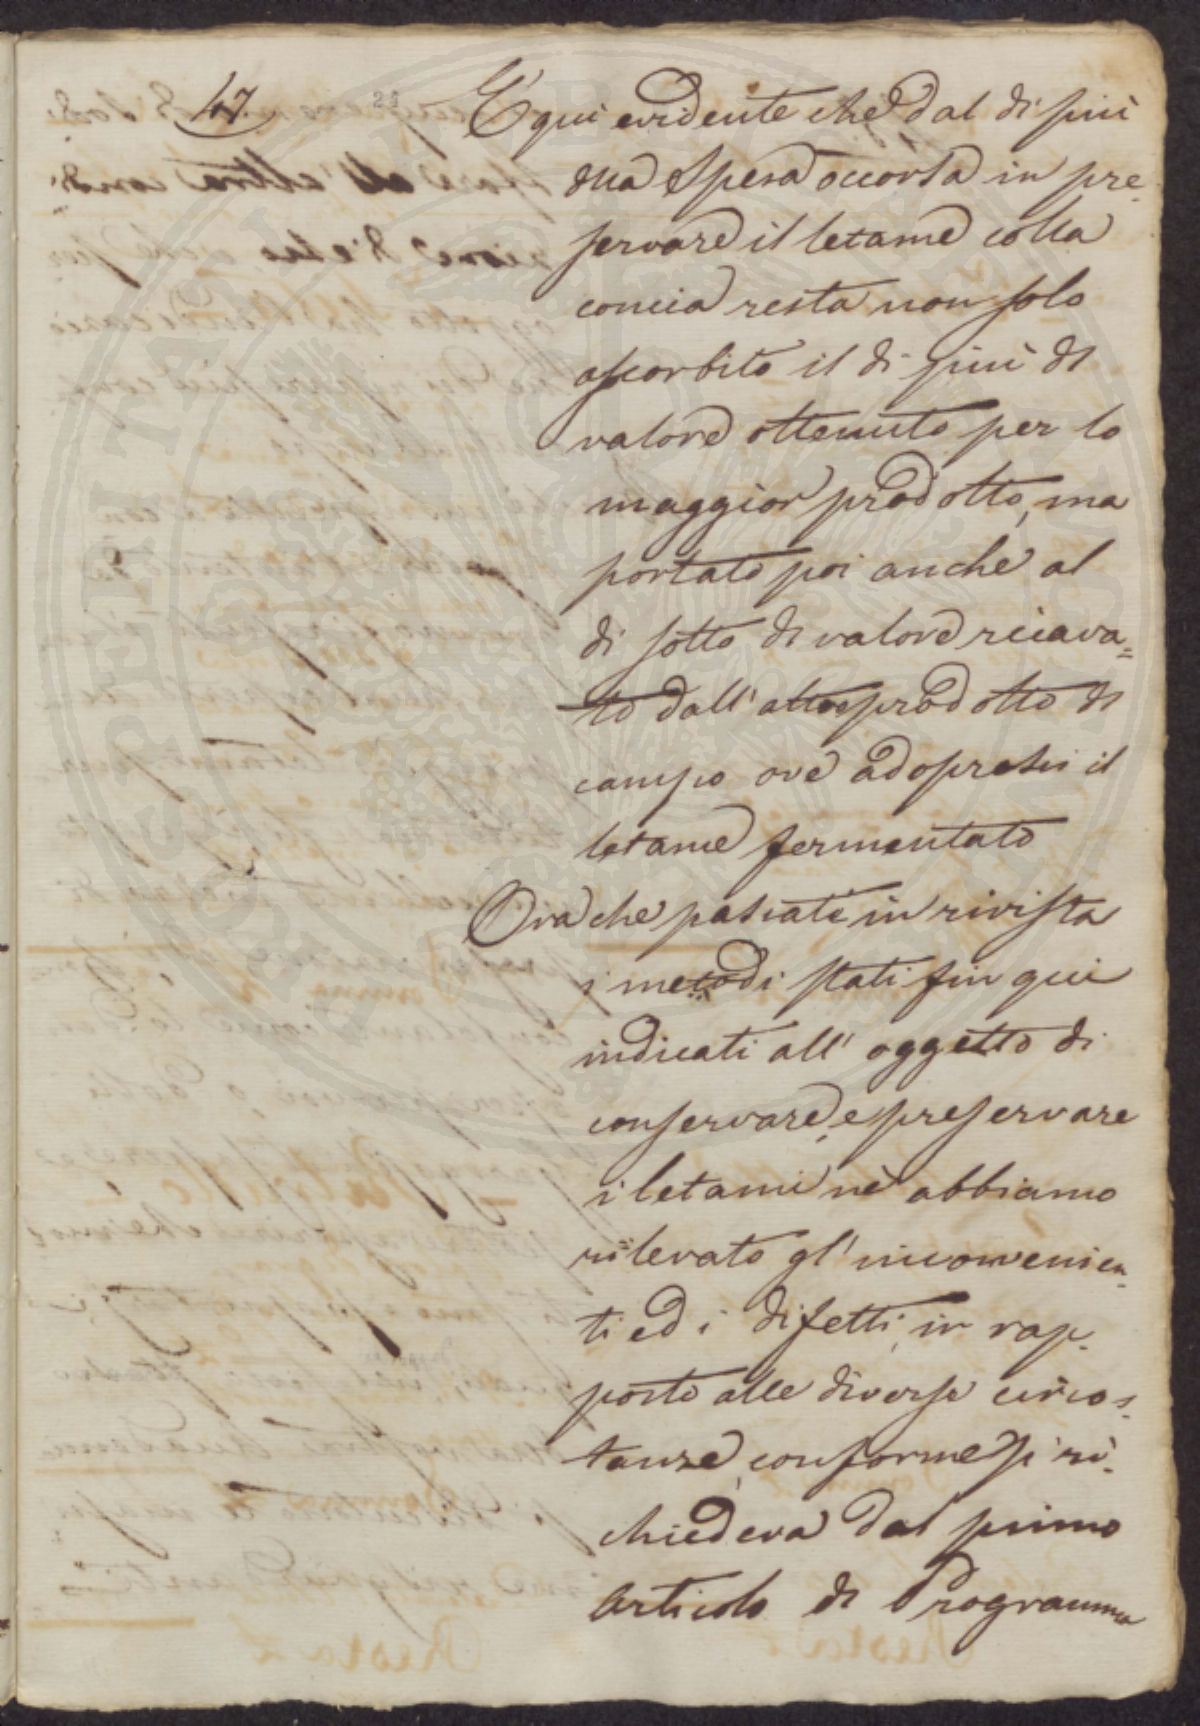 47.
23
È qui evidente che dal di più
della Spesa occorsa in pre=
servare il letame colla
concia resta non solo
assorbito il di più di
valore ottenuto per lo
maggior prodotto, ma
portato poi anche al
di sotto di valore ricava=
to dall' altro prodotto di
campo ove adopressi il
letame fermentato
Ora che passate in rivista
i metodi stati fin qui
indicati all' oggetto di
conservare, e preservare
i letami nè abbiamo
rilevato gl' inconvenien=
ti ed i difetti, in rap=
porto alle diverse circos=
tanze, conforme si ri=
chiedeva dal primo
articolo di Programma